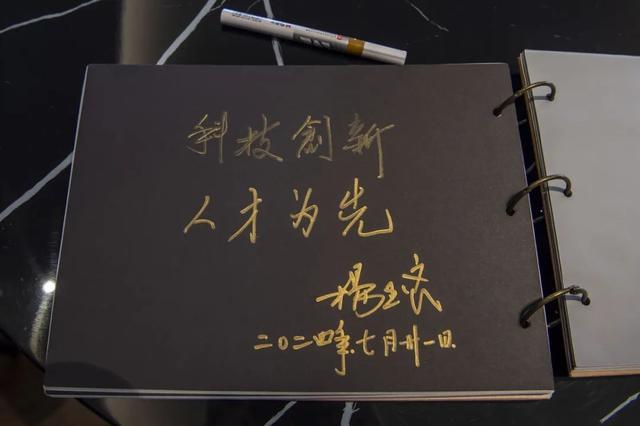 科技創新
人才为先
杨玉良
二〇二四年七月廿一日